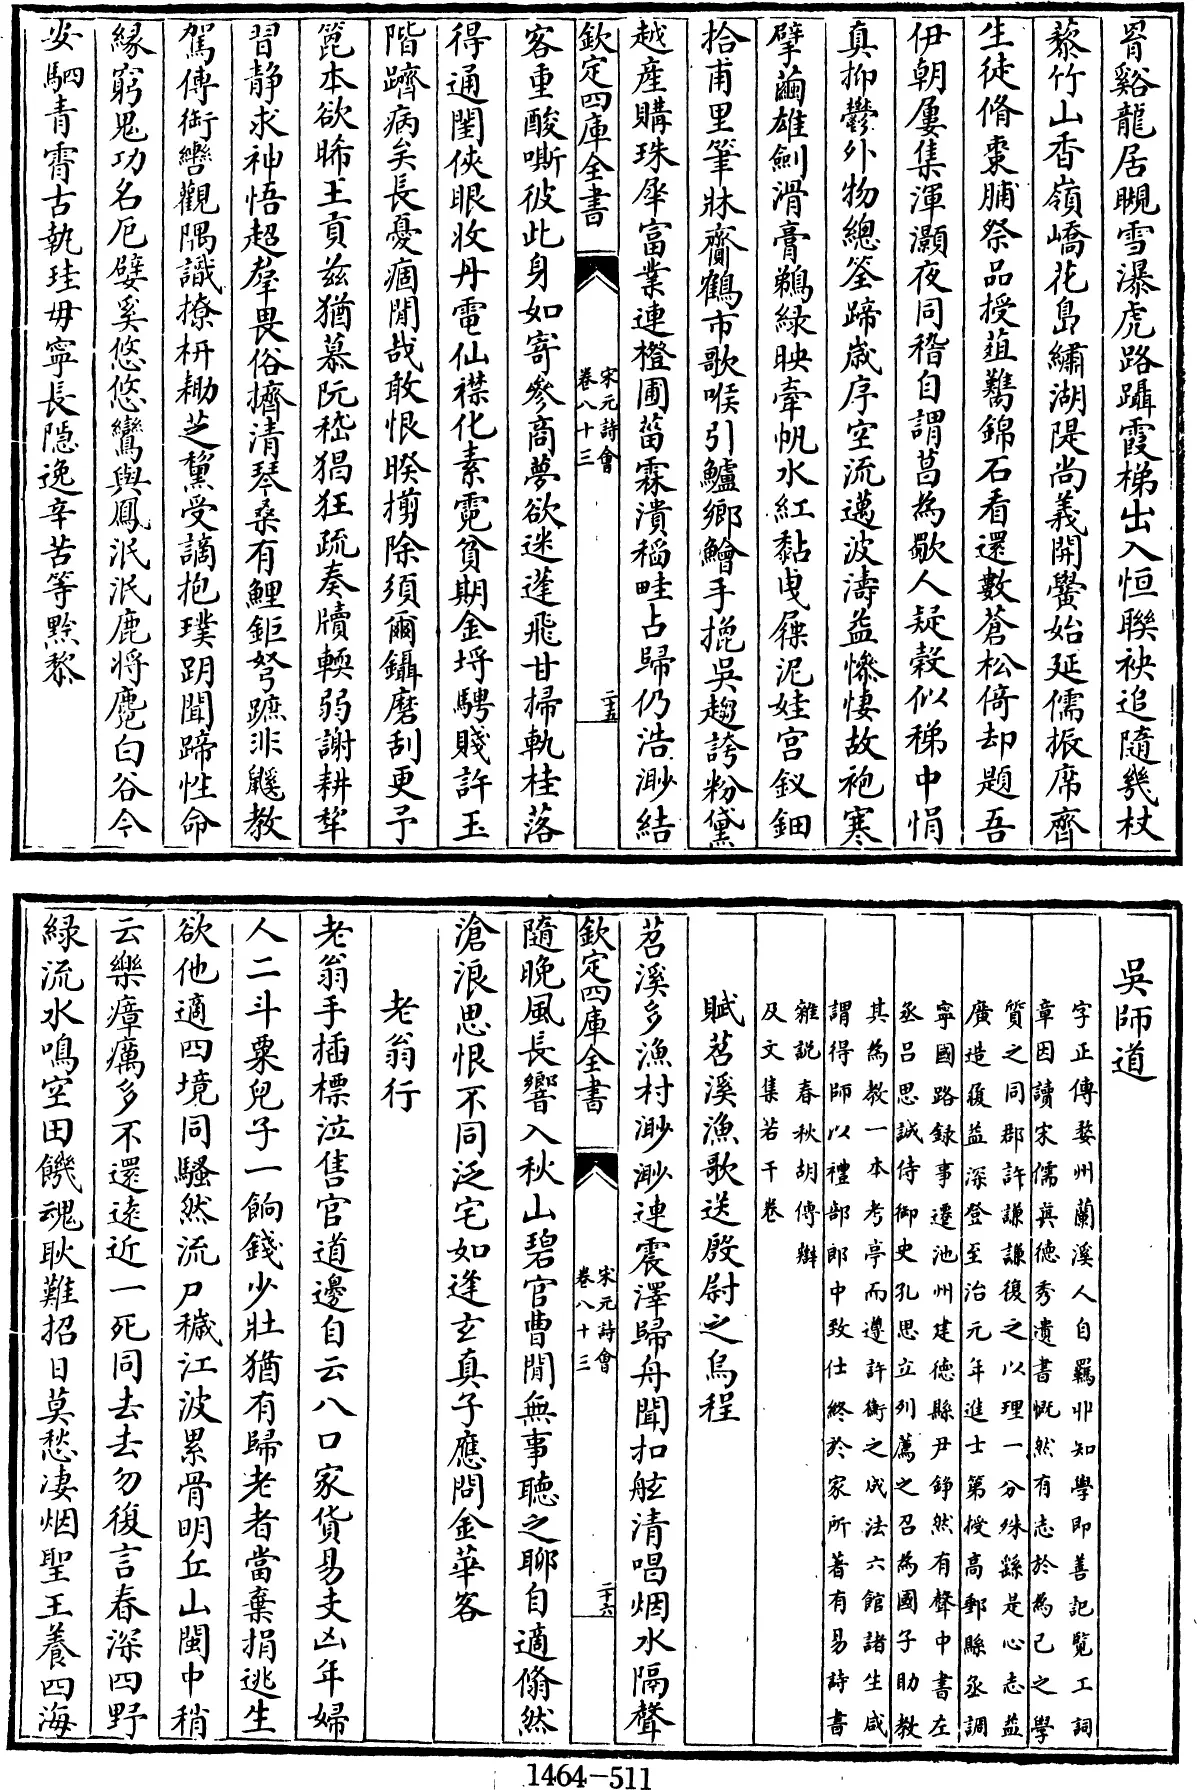 胥谿龍居覞雪瀑虎路躡霞梯出入恒聯袂追隨幾杖
藜竹山香嶺嶠花島繡湖隄尚義開黌始延儒振席齊
生徒脩棗脯祭品授葅觿錦石看還數蒼松倚却題吾
伊朝屢集渾灝夜同稽自謂菖為歜人疑榖似稊中悁
真抑鬱外物總筌蹄歲序空流邁波濤益慘悽故袍寒
擘繭雄劍滑膏鵜綠映牽帆水紅黏曳屧泥娃宮釵鈿
拾甫里筆牀齎鶴市歌喉引鱸鄉鱠手㧢吳趨誇粉黛
越産購珠犀富業連橙圃菑霖潰稻畦占歸仍浩渺結
欽定四庫全書 宋元詩會 卷八十三 二十五
客重酸嘶彼此身如寄參商夢欲迷蓬飛甘掃軌桂落
得通閨俠眼收丹電仙襟化素霓貧期金埒騁賤許玉
階躋病矣長憂痼閒哉敢恨暌搒除須爾鑷磨刮更予
篦本欲晞王貢兹猶慕阮嵇猖狂疏奏牘輭弱謝耕犂
習静求神悟超羣畏俗擠清琴桑有鯉鉅弩蹠非鼷教
駕傳銜轡觀隅識撩枅耡芝薰受謫抱璞刖聞蹄性命
緣窮鬼功名厄嬖奚悠悠鸞與鳳泯泯鹿将麛白谷今
安駟青霄古執珪毋寧長隠逸辛苦等黔黎
吳師道
字正傳婺州蘭溪人自羈丱知學即善記覧工詞
章因讀宋儒真德秀遺書慨然有志於為己之學
質之同郡許謙謙復之以理一分殊繇是心志益
廣造履益深登至治元年進士第授高郵縣丞調
寧國路録事遷池州建德縣尹錚然有聲中書左
丞吕思誠侍御史孔思立列薦之召為國子助教
其為教一本考亭而遵許衡之成法六館諸生咸
謂得師以禮部郎中致仕終於家所著有易詩書
雜說春秋胡傳辨
及文集若干卷
賦苕溪漁歌送殷尉之烏程
苕溪多漁村渺渺連震澤歸舟聞扣舷清唱烟水隔聲
欽定四庫全書 宋元詩會 卷八十三 二十六
隨晚風長響入秋山碧官曹閒無事聽之聊自適翛然
滄浪思恨不同泛宅如逢玄真子應問金華客
老翁行
老翁手插標泣售官道邊自云八口家貨易支凶年婦
人二斗粟兒子一餉錢少壯猶有歸老者當棄捐逃生
欲他適四境同騷然流尸穢江波累骨明丘山閩中稍
云樂瘴癘多不還逺近一死同去去勿復言春深四野
緑流水鳴空田饑魂耿難招日莫愁凄烟聖王養四海
1464-511